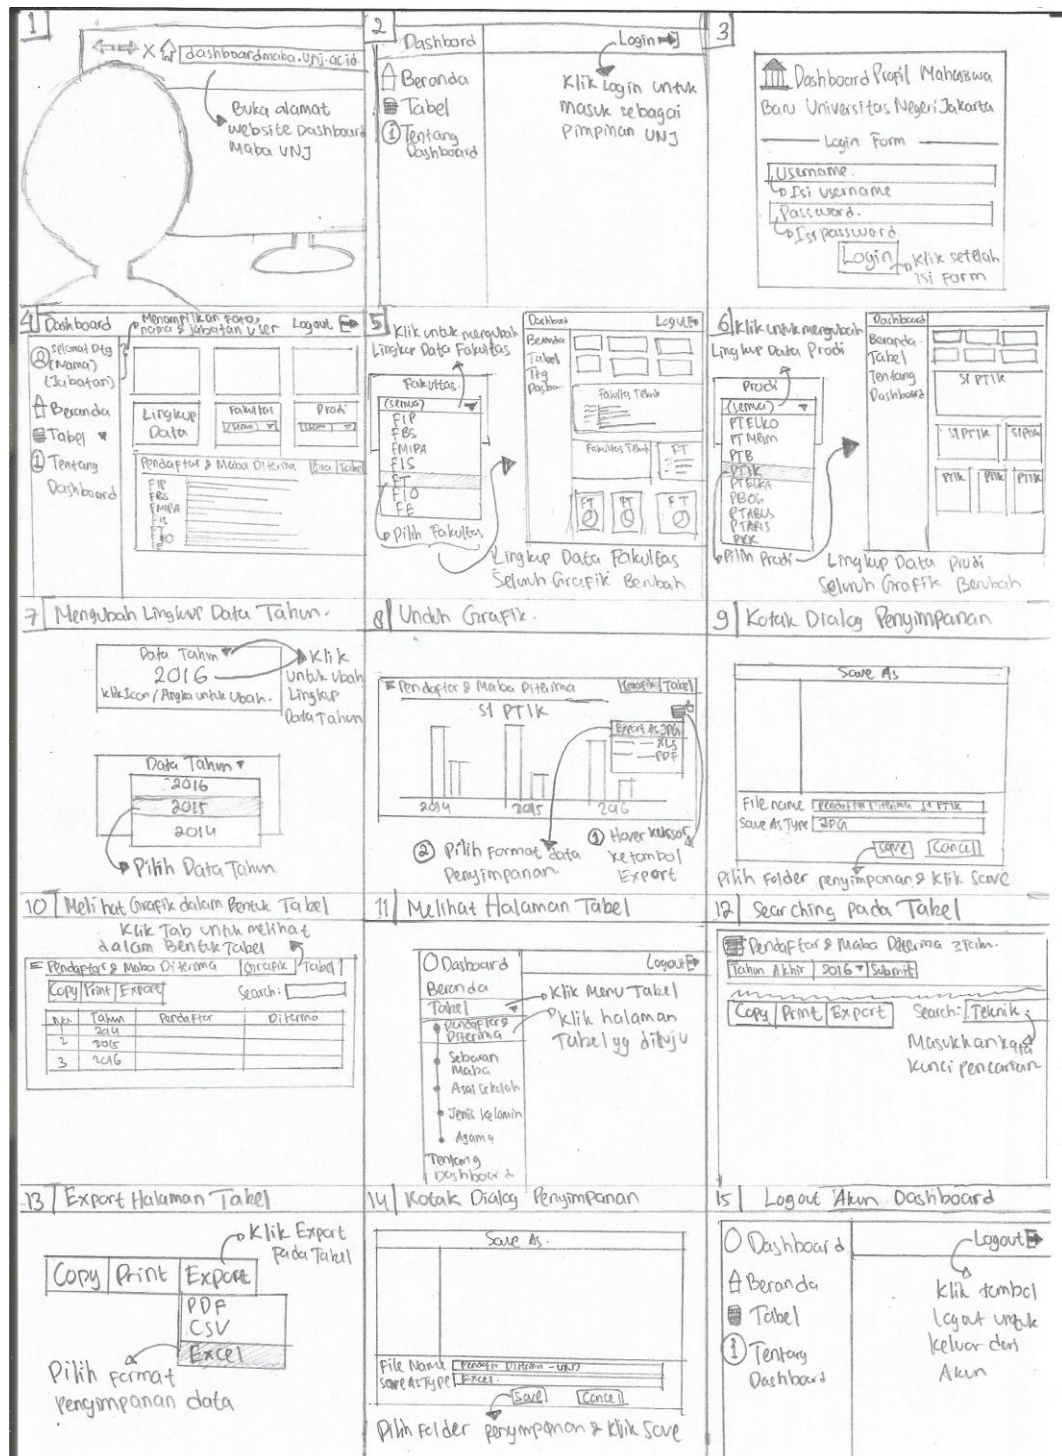 1
dashboardmaba.unj.ac.id
Buka alamat
website Dashboard
Maba UNJ
2
Dashbord
Login
Beranda
Tabel
Tentang
Dashboard
Klik Login untuk
masuk sebagai
Pimpinan UNJ
3
Dashboard Profil Mahasiswa
Baru Universitas Negeri Jakarta
Login Form
Username.
Isi username
Password.
Isi password
Login
Klik setelah
isi Form
4 Dashboard
Menampilkan Foto,
nama & jabatan user
Logout
Selamat Dtg
(Nama)
(Jabatan)
Beranda
Tabel
Tentang
Dashboard
Lingkup
Data
Fakultas
(Semua)
Prodi
(Semua)
Pendaftar & Maba Diterima
Tabel
FIP
FBS
FMIPA
FIS
FT
FIO
FE
5
Klik untuk mengubah
Lingkup Data Fakultas
Fakultas.
(semua)
FIP
FBS
FMIPA
FIS
FT
FIO
FE
Pilih Fakultas
Dashboard
Logout
Beranda
Tabel
Ttg
Dasbo
Fakultas Teknik
Fakultas Teknik
FT
FT
FT
FT
Lingkup Data Fakultas
Seluruh Grafik Berubah
6
Klik untuk mengubah
Lingkup Data Prodi
Prodi
(semua)
PTELKO
PTMesin
PTB
PTIK
PTELKA
PBOG
PTABUS
PTARIS
PKK
Pilih Prodi
Dashboard
Beranda
Tabel
Tentang
Dashboard
S1 PTIK
S1PTIK
S1PTIK
PTIK
PTIK
PTIK
Lingkup Data Prodi
Seluruh Grafik Berubah
7 Mengubah Lingkup Data Tahun.
Data Tahun
2016
Klik Icon/Angka untuk Ubah.
Klik
untuk ubah
Lingkup
Data Tahun
Data Tahun
2016
2015
2014
Pilih Data Tahun
8 Unduh Grafik.
Pendaftar & Maba Diterima
Grafik Tabel
S1 PTIK
Export As JPG
XLS
PDF
2014 2015 2016
2 Pilih Format data
Penyimpanan
1 Hover kursor
ke tombol
Export
9 Kotak Dialog Penyimpanan
Save As
File name Pendaftar Diterima S1 PTIK
Save As Type JPG
Save Cancel
Pilih Folder penyimpanan & Klik Save
10 Melihat Grafik dalam Bentuk Tabel
Klik Tab untuk melihat
dalam Bentuk Tabel
Pendaftar & Maba Diterima Grafik Tabel
Copy Print Export Search:
No. Tahun Pendaftar Diterima
1 2014
2 2015
3 2016
11 Melihat Halaman Tabel
Dasboard
Logout
Beranda
Tabel
Pendaftar &
Diterima
Sebaran
Maba
Asal Sekolah
Jenis Kelamin
Agama
Tentang
Dashboard
Klik Menu Tabel
Klik halaman
Tabel yg dituju
12 Searching pada Tabel
Pendaftar & Maba Diterima 3 Tahn.
Tahun Akhir 2016 Submit
Copy Print Export Search: Teknik
Masukkan kata
kunci pencarian
13 Export Halaman Tabel
Klik Export
pada Tabel
Copy Print Export
PDF
CSV
Excel
Pilih format
pengimpanan data
14 Kotak Dialog Penyimpanan
Save As.
File Name Pendaftar Diterima - UNJ
Save As Type Excel.
Save Cancel
Pilih Folder penyimpanan & Klik Save
15 Logout Akun Dashboard
Dashboard
Logout
Beranda
Tabel
Tentang
Dashboard
Klik tombol
Logout untuk
keluar dari
Akun